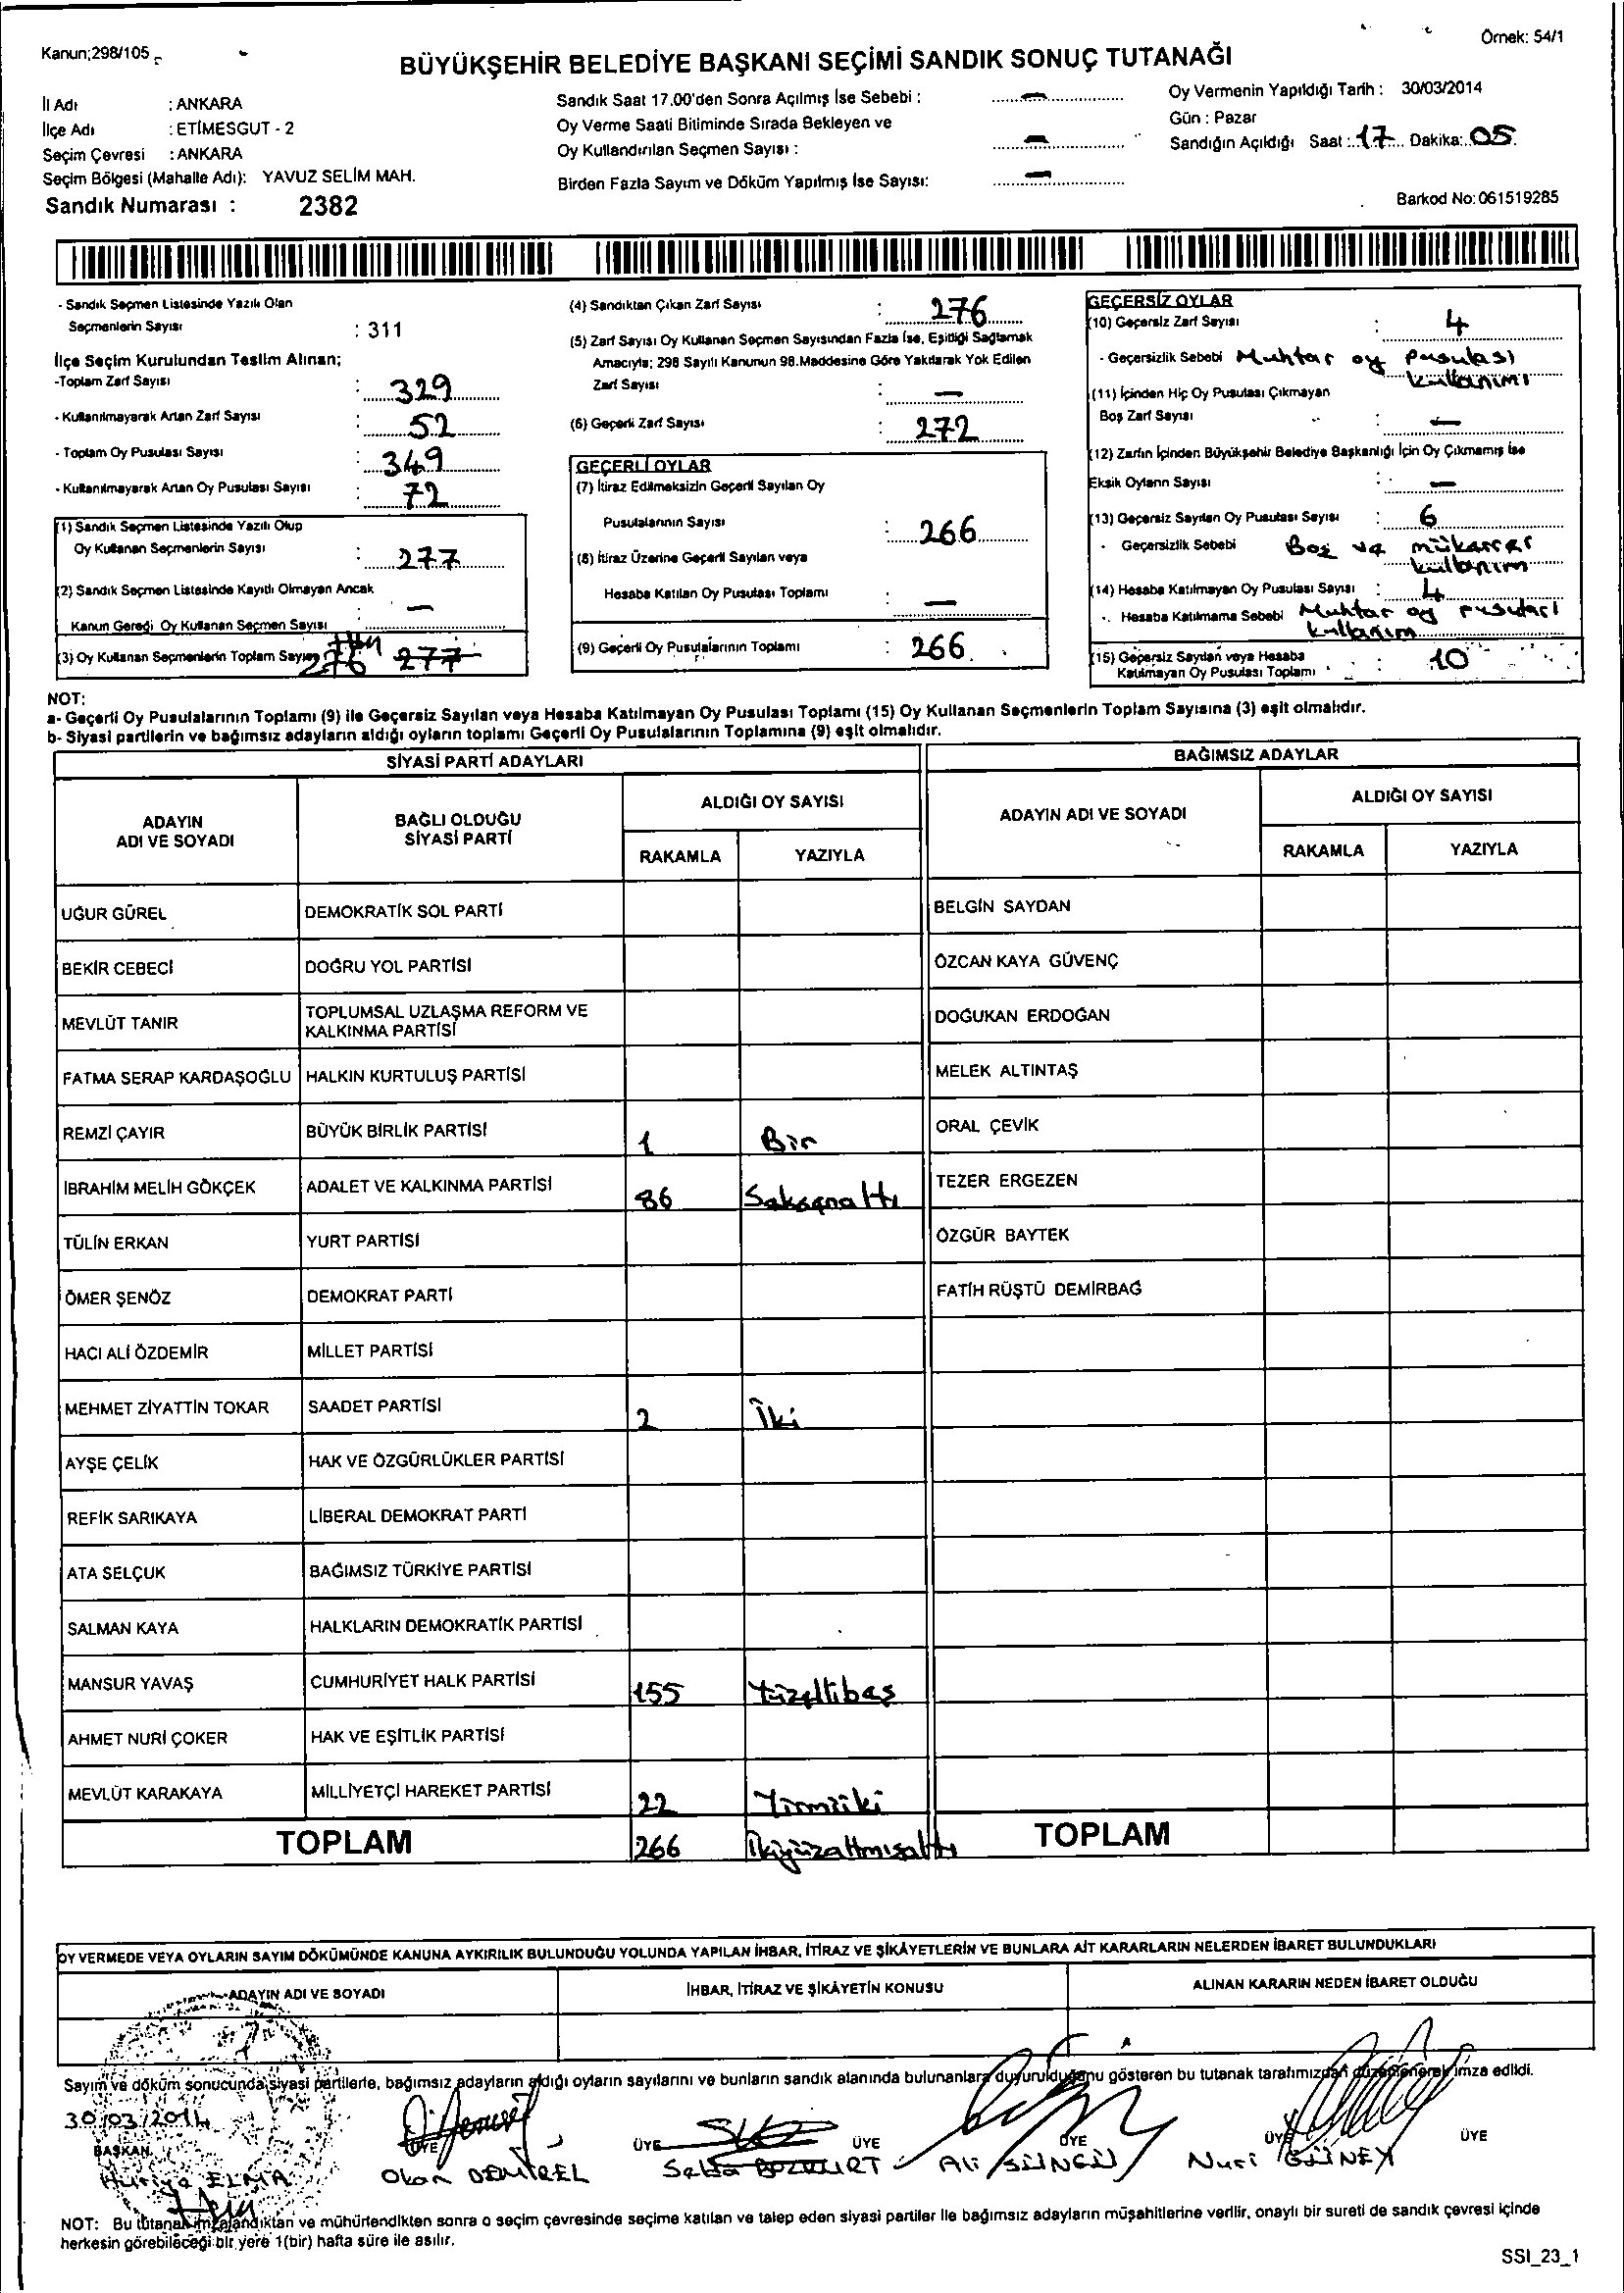 Kanun;298/105
Örnek: 54/1
BÜYÜKŞEHİR BELEDİYE BAŞKANI SEÇİMİ SANDIK SONUÇ TUTANAĞI
İl Adı : ANKARA
İlçe Adı : ETİMESGUT - 2
Seçim Çevresi : ANKARA
Seçim Bölgesi (Mahalle Adı): YAVUZ SELİM MAH.
Sandık Numarası : 2382
Sandık Saat 17.00'den Sonra Açılmış İse Sebebi : —
Oy Verme Saati Bitiminde Sırada Bekleyen ve
Oy Kullandırılan Seçmen Sayısı : —
Birden Fazla Sayım ve Döküm Yapılmış İse Sayısı: —
Oy Vermenin Yapıldığı Tarih : 30/03/2014
Gün : Pazar
Sandığın Açıldığı Saat : 17 Dakika: 05
Barkod No: 061519285
- Sandık Seçmen Listesinde Yazılı Olan
Seçmenlerin Sayısı : 311
İlçe Seçim Kurulundan Teslim Alınan;
-Toplam Zarf Sayısı : 329
- Kullanılmayarak Artan Zarf Sayısı : 52
- Toplam Oy Pusulası Sayısı : 349
- Kullanılmayarak Artan Oy Pusulası Sayısı : 72
(1) Sandık Seçmen Listesinde Yazılı Olup
Oy Kullanan Seçmenlerin Sayısı : 277
(2) Sandık Seçmen Listesinde Kayıtlı Olmayan Ancak
Kanun Gereği Oy Kullanan Seçmen Sayısı : —
(3) Oy Kullanan Seçmenlerin Toplam Sayısı 276 277
(4) Sandıktan Çıkan Zarf Sayısı : 276
(5) Zarf Sayısı Oy Kullanan Seçmen Sayısından Fazla İse, Eşitliği Sağlamak
Amacıyla; 298 Sayılı Kanunun 98.Maddesine Göre Yakılarak Yok Edilen
Zarf Sayısı : —
(6) Geçerli Zarf Sayısı : 272
GEÇERLİ OYLAR
(7) İtiraz Edilmeksizin Geçerli Sayılan Oy
Pusulalarının Sayısı : 266
(8) İtiraz Üzerine Geçerli Sayılan veya
Hesaba Katılan Oy Pusulası Toplamı : —
(9) Geçerli Oy Pusulalarının Toplamı : 266
GEÇERSİZ OYLAR
(10) Geçersiz Zarf Sayısı : 4
- Geçersizlik Sebebi Muhtar oy pusulası
kullanımı
(11) İçinden Hiç Oy Pusulası Çıkmayan
Boş Zarf Sayısı : —
(12) Zarfın İçinden Büyükşehir Belediye Başkanlığı İçin Oy Çıkmamış İse
Eksik Oyların Sayısı : —
(13) Geçersiz Sayılan Oy Pusulası Sayısı : 6
- Geçersizlik Sebebi Boş ve mükerrer
kullanım
(14) Hesaba Katılmayan Oy Pusulası Sayısı : 4
- Hesaba Katılmama Sebebi Muhtar oy pusulası
kullanım
(15) Geçersiz Sayılan veya Hesaba
Katılmayan Oy Pusulası Toplamı : 10
NOT:
a- Geçerli Oy Pusulalarının Toplamı (9) ile Geçersiz Sayılan veya Hesaba Katılmayan Oy Pusulası Toplamı (15) Oy Kullanan Seçmenlerin Toplam Sayısına (3) eşit olmalıdır.
b- Siyasi partilerin ve bağımsız adayların aldığı oyların toplamı Geçerli Oy Pusulalarının Toplamına (9) eşit olmalıdır.
SİYASİ PARTİ ADAYLARI
BAĞIMSIZ ADAYLAR
ADAYIN
ADI VE SOYADI
BAĞLI OLDUĞU
SİYASİ PARTİ
ALDIĞI OY SAYISI
RAKAMLA YAZIYLA
ADAYIN ADI VE SOYADI
ALDIĞI OY SAYISI
RAKAMLA YAZIYLA
UĞUR GÜREL DEMOKRATİK SOL PARTİ BELGİN SAYDAN
BEKİR CEBECİ DOĞRU YOL PARTİSİ ÖZCAN KAYA GÜVENÇ
MEVLÜT TANIR TOPLUMSAL UZLAŞMA REFORM VE
KALKINMA PARTİSİ DOĞUKAN ERDOĞAN
FATMA SERAP KARDAŞOĞLU HALKIN KURTULUŞ PARTİSİ MELEK ALTINTAŞ
REMZİ ÇAYIR BÜYÜK BİRLİK PARTİSİ 1 Bir ORAL ÇEVİK
İBRAHİM MELİH GÖKÇEK ADALET VE KALKINMA PARTİSİ 86 Seksenaltı TEZER ERGEZEN
TÜLİN ERKAN YURT PARTİSİ ÖZGÜR BAYTEK
ÖMER ŞENÖZ DEMOKRAT PARTİ FATİH RÜŞTÜ DEMİRBAĞ
HACI ALİ ÖZDEMİR MİLLET PARTİSİ
MEHMET ZİYATTİN TOKAR SAADET PARTİSİ 2 İki
AYŞE ÇELİK HAK VE ÖZGÜRLÜKLER PARTİSİ
REFİK SARIKAYA LİBERAL DEMOKRAT PARTİ
ATA SELÇUK BAĞIMSIZ TÜRKİYE PARTİSİ
SALMAN KAYA HALKLARIN DEMOKRATİK PARTİSİ
MANSUR YAVAŞ CUMHURİYET HALK PARTİSİ 155 Yüzellibeş
AHMET NURİ ÇOKER HAK VE EŞİTLİK PARTİSİ
MEVLÜT KARAKAYA MİLLİYETÇİ HAREKET PARTİSİ 22 Yirmiiki
TOPLAM 266 İkiyüzaltmışaltı TOPLAM
OY VERMEDE VEYA OYLARIN SAYIM DÖKÜMÜNDE KANUNA AYKIRILIK BULUNDUĞU YOLUNDA YAPILAN İHBAR, İTİRAZ VE ŞİKAYETLERİN VE BUNLARA AİT KARARLARIN NELERDEN İBARET BULUNDUKLARI
ADAYIN ADI VE SOYADI İHBAR, İTİRAZ VE ŞİKAYETİN KONUSU ALINAN KARARIN NEDEN İBARET OLDUĞU
Sayım ve döküm sonucunda siyasi partilerle, bağımsız adayların aldığı oyların sayılarını ve bunların sandık alanında bulunanlara duyurulduğunu gösteren bu tutanak tarafımızdan düzenlenerek imza edildi.
30/03/2014
BAŞKAN ÜYE ÜYE ÜYE ÜYE ÜYE ÜYE
Huriye ELMA Okan DEMİREL Selda BOZKURT Ali SÜNGÜ Nuri GÜNEY
NOT: Bu tutanak imzalandıktan ve mühürlendikten sonra o seçim çevresinde seçime katılan ve talep eden siyasi partiler ile bağımsız adayların müşahitlerine verilir, onaylı bir sureti de sandık çevresi içinde
herkesin görebileceği bir yere 1(bir) hafta süre ile asılır.
SSI_23_1